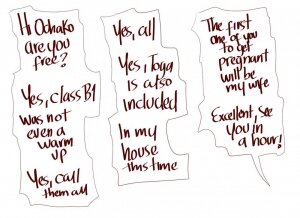 Hi Ochako
are you
free?
Yes, class B1
was not
even a
warm
up
Yes, call
them all
Yes, all
Yes, Toga
is also
included
In my
house
this time
The first
one of you
to get
pregnant
will be
my wife
Excellent, see
you in
a hour!